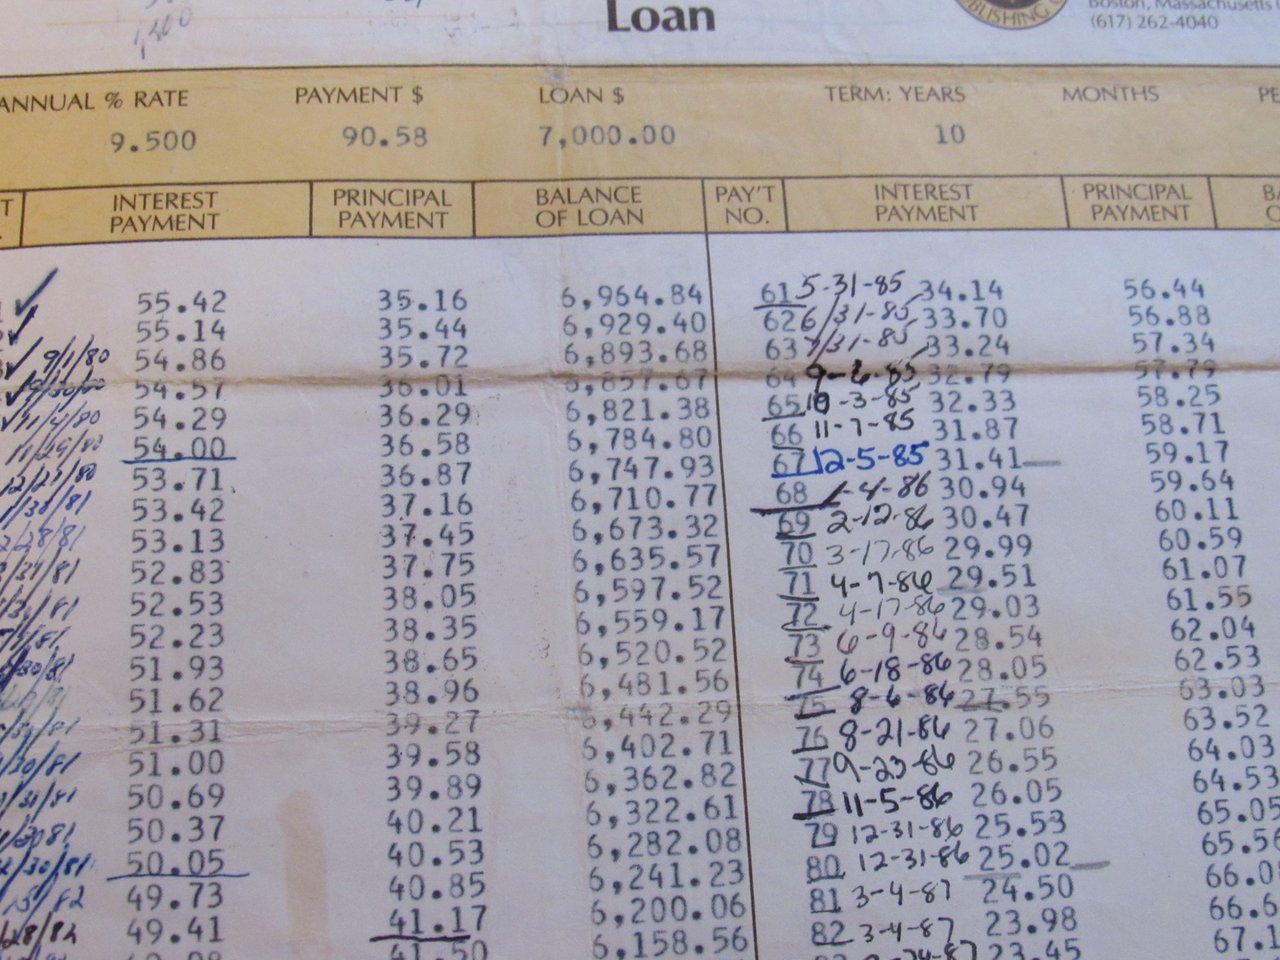 1,300
Loan
Boston, Massachusetts
(617) 262-4040
ANNUAL % RATE PAYMENT $ LOAN $ TERM: YEARS MONTHS
9.500 90.58 7,000.00 10
INTEREST PAYMENT PRINCIPAL PAYMENT BALANCE OF LOAN PAY'T NO. INTEREST PAYMENT PRINCIPAL PAYMENT
55.42 35.16 6,964.84 61 5-31-85 34.14 56.44
55.14 35.44 6,929.40 62 6/31-85 33.70 56.88
9/1/80 54.86 35.72 6,893.68 63 7/31-85 33.24 57.34
54.57 36.01 6,857.67 64 9-6-85 32.79 57.79
11/4/80 54.29 36.29 6,821.38 65 10-3-85 32.33 58.25
11/29/80 54.00 36.58 6,784.80 66 11-7-85 31.87 58.71
53.71 36.87 6,747.93 67 12-5-85 31.41 59.17
53.42 37.16 6,710.77 68 1-4-86 30.94 59.64
53.13 37.45 6,673.32 69 2-12-86 30.47 60.11
52.83 37.75 6,635.57 70 3-17-86 29.99 60.59
52.53 38.05 6,597.52 71 4-7-86 29.51 61.07
52.23 38.35 6,559.17 72 4-17-86 29.03 61.55
51.93 38.65 6,520.52 73 6-9-86 28.54 62.04
51.62 38.96 6,481.56 74 6-18-86 28.05 62.53
51.31 39.27 6,442.29 75 8-6-86 27.55 63.03
51.00 39.58 6,402.71 76 8-21-86 27.06 63.52
50.69 39.89 6,362.82 77 9-23-86 26.55 64.03
50.37 40.21 6,322.61 78 11-5-86 26.05 64.53
50.05 40.53 6,282.08 79 12-31-86 25.53 65.05
49.73 40.85 6,241.23 80 12-31-86 25.02 65.56
49.41 41.17 6,200.06 81 3-4-87 24.50
41.50 6,158.56 82 3-4-87 23.98
23.45